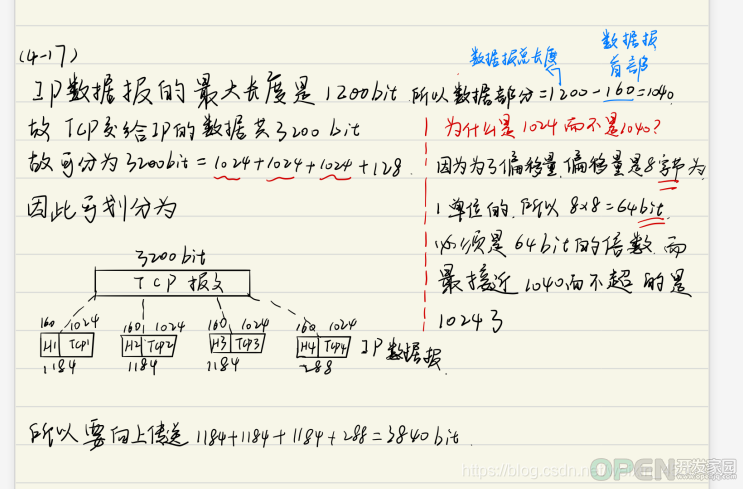 (4-17)
数据报总长度
数据报
首部
IP数据报的最大长度是1200bit 所以数据部分=1200-160=1040
故TCP交给IP的数据共3200bit
故可分为3200bit=1024+1024+1024+128
因此可划分为
为什么是1024而不是1040?
因为为了偏移量,偏移量是8字节为
1单位的,所以8×8=64bit
必须是64bit的倍数,而
最接近1040而不超的是
1024了
3200bit
TCP报文
160 1024 160 1024 160 1024 160 1024
H1 TCP1 H2 TCP2 H3 TCP3 H4 TCP4 IP数据报
1184 1184 1184 288
所以要向上传送1184+1184+1184+288=3840bit.
https://blog.csdn.net/
OPEN开发家园